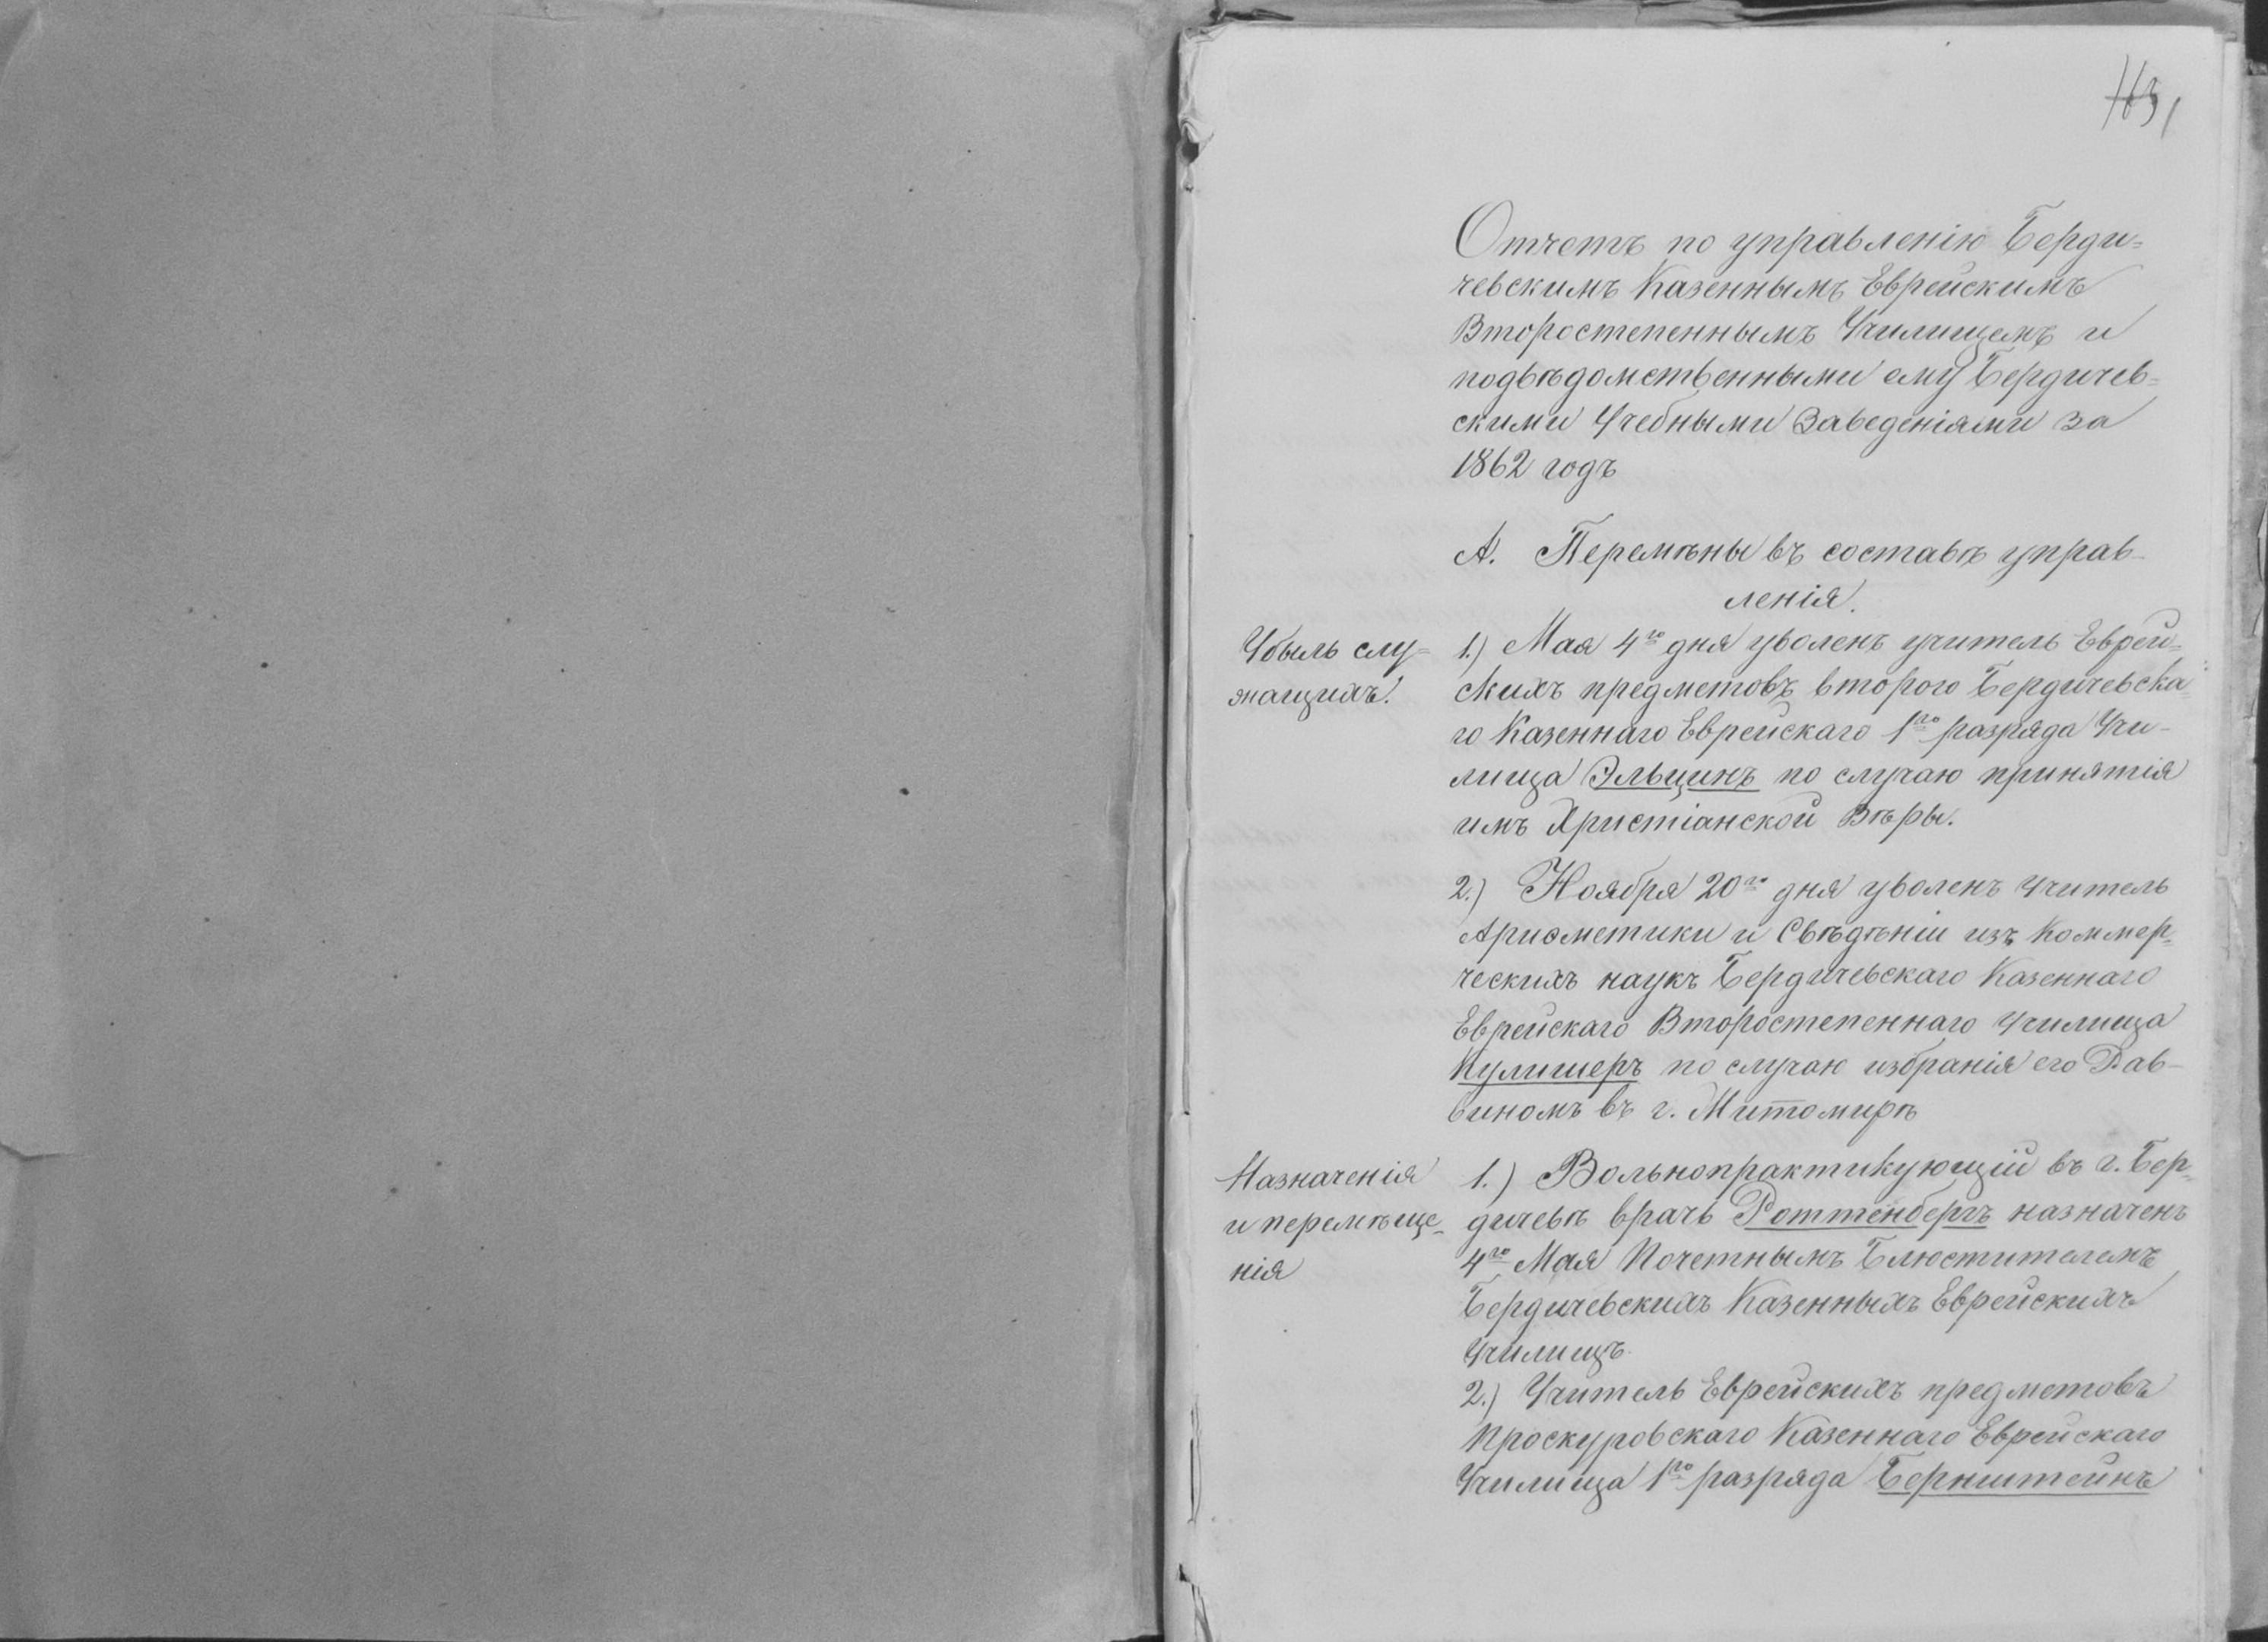 Отчетъ по управленію Берди=
чевскимъ Казеннымъ Еврейскимъ
Второстепеннымъ Училищемъ и
подвѣдомственными ему Бердичев=
скими Учебными Заведеніями за
1862 годъ
А. Перемѣны въ составѣ управ-
ленія.
Убыль слу=
жащихъ.
1.) Мая 4го дня уволенъ учитель Еврей=
скихъ предметовъ второго Бердичевска=
го Казеннаго Еврейскаго 1го разряда Учи-
лища Эльцинъ по случаю принятія
имъ Христіанской Вѣры.
2.) Ноября 20го дня уволенъ Учитель
Ариѳметики и Свѣдѣній изъ Коммер=
ческихъ наукъ Бердичевскаго Казеннаго
Еврейскаго Второстепеннаго Училища
Кулишеръ по случаю избранія его Рав-
виномъ въ г. Житомирѣ
Назначенія
и перемѣще=
нія
1.) Вольнопрактикующій въ г. Бер=
дичевѣ врачъ Роттенбергъ назначенъ
4го Мая Почетнымъ Блюстителемъ
Бердичевскихъ Казенныхъ Еврейскихъ
Училищъ.
2.) Учитель Еврейскихъ предметовъ
Проскуровскаго Казеннаго Еврейскаго
Училища 1го разряда Бернштейнъ